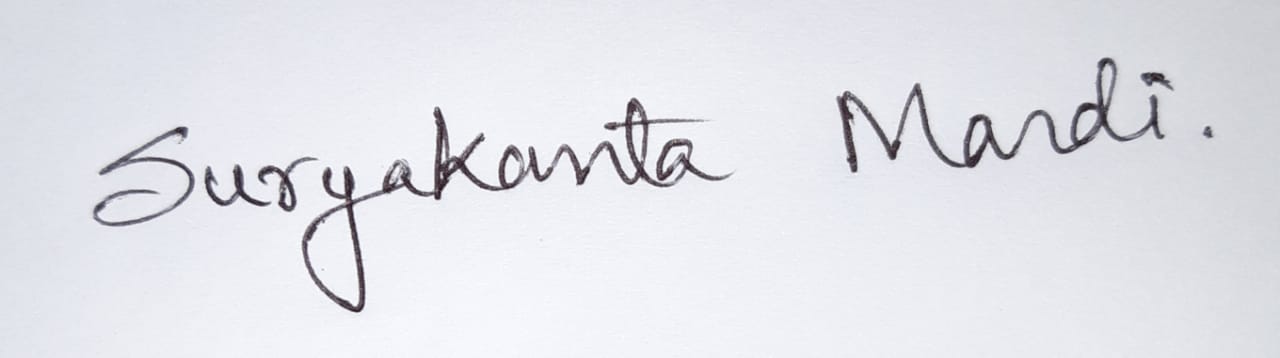 Suryakanta Mardi.